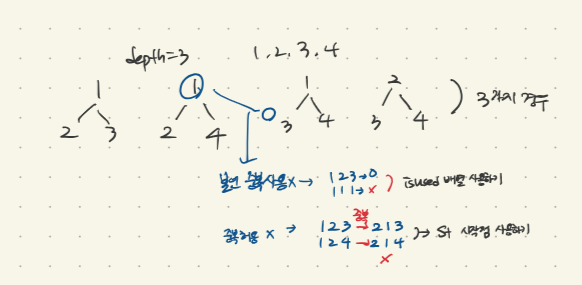 depth=3
1, 2, 3, 4
1
2 3
1
2 4
1
3 4
2
3 4
) 3가지 경우
중복사용X → 1 2 3 → O
1 1 1 → X
isused 배열 사용하기
중복
중복허용 X → 1 2 3 → 2 1 3
1 2 4 → 2 1 4
X
→ St 시작점 사용하기